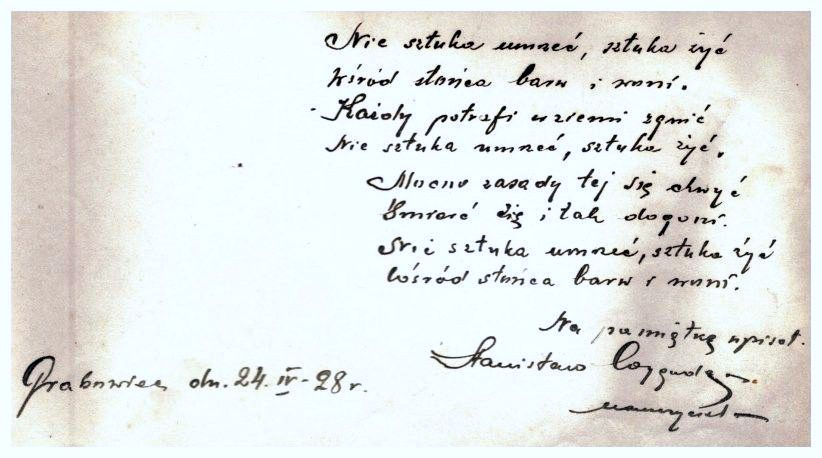 Nie sztuka umrzeć, sztuka żyć
Wśród słońca barw i woni.
Każdy potrafi w ziemi zgnić
Nie sztuka umrzeć, sztuka żyć.
Mocno zasady tej się chwyć
Śmierć cię i tak dogoni.
Nie sztuka umrzeć, sztuka żyć
Wśród słońca barw i woni.
Na pamiątkę wpisał.
Stanisław
Grabowiec dn. 24 IV - 28 r.